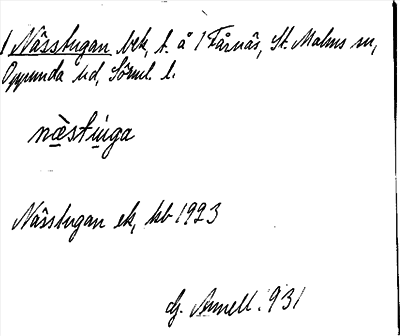 1 Nässtugan bek, t. å 1 Fårnäs, St. Malms sn,
Oppunda hd, Söml. l.
næ̀stùga
Nässtugan ek, kb 1923
G. Arnell. 931